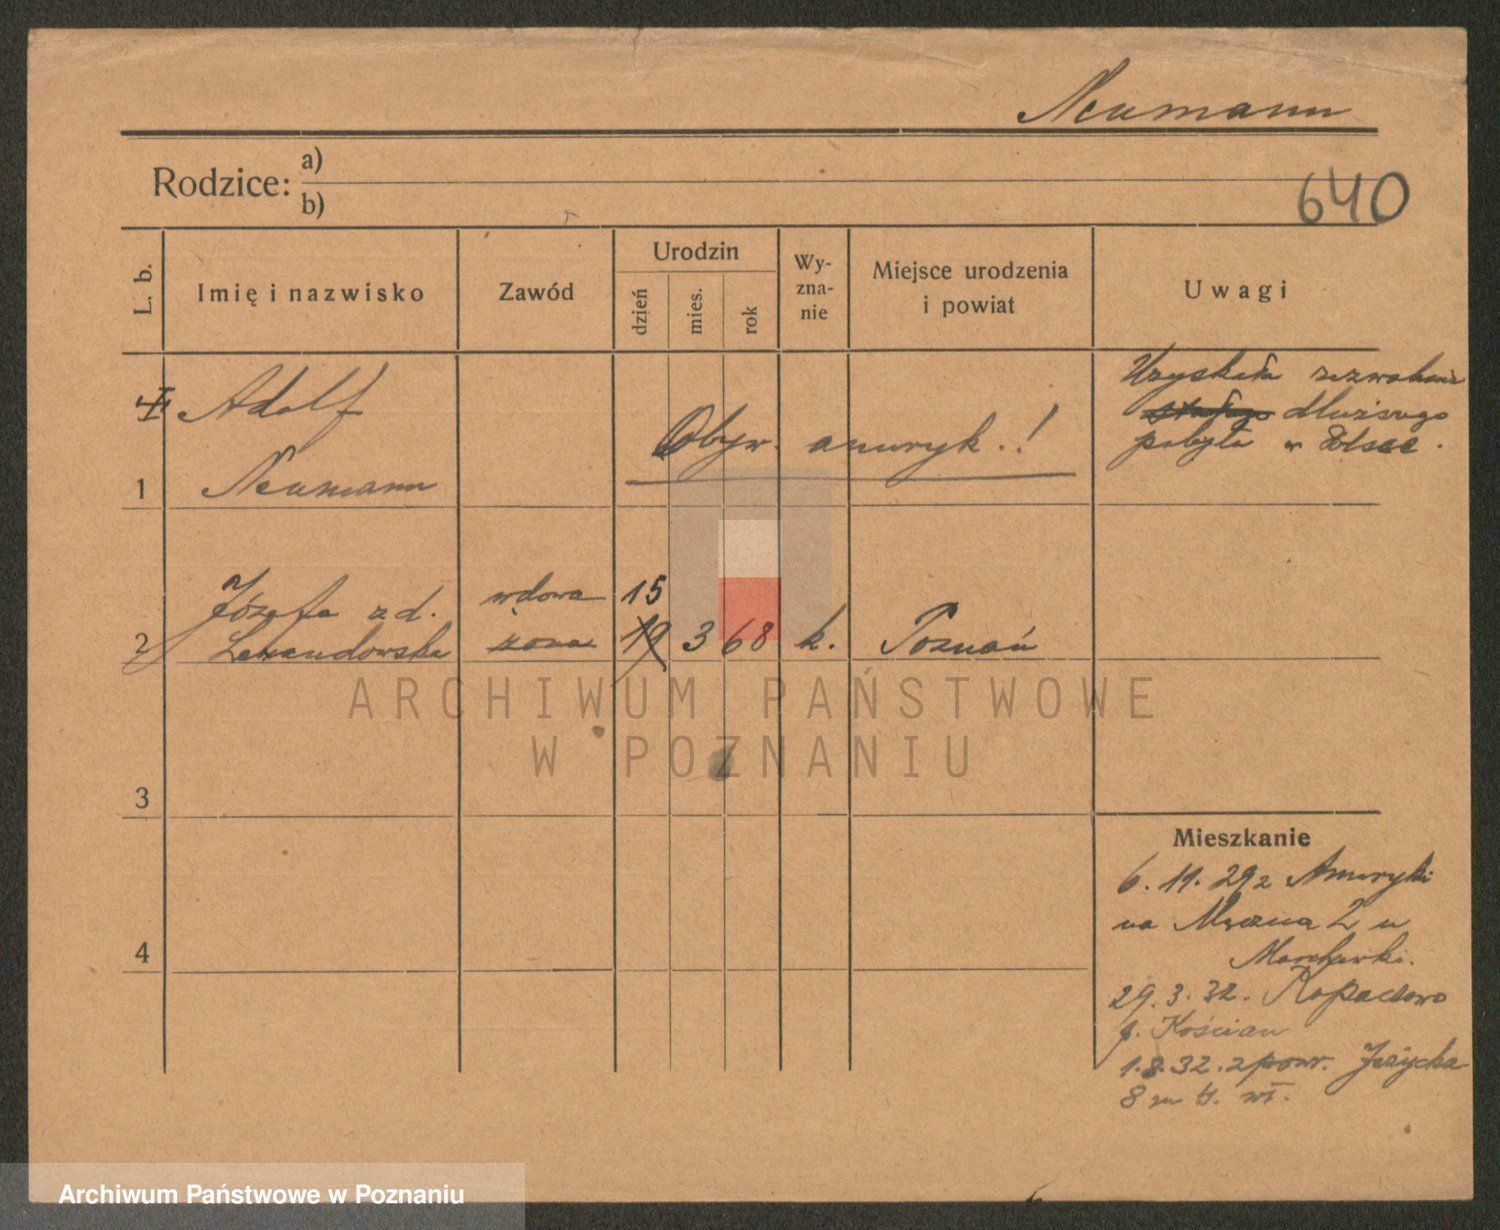 Neumann
Rodzice: a)
b)
640
L. b.
Imię i nazwisko
Zawód
Urodzin
dzień
mies.
rok
Wy-
zna-
nie
Miejsce urodzenia
i powiat
Uwagi
Adolf
1 Neumann
Obyw. ameryk.!
Uzyskała zezwolenie
dłuższego
pobytu w Polsce.
Józefa zd. wdowa 15
2 Lewandowska żona 19 3 68 k. Poznań
ARCHIWUM PAŃSTWOWE
W POZNANIU
3
4
Mieszkanie
6. 11. 29 z Ameryki
na Męczna 2 u
29. 3. 32.
p. Kościan
1. 8. 32. z powr. Jeżycka
8 m 4. wł.
Archiwum Państwowe w Poznaniu